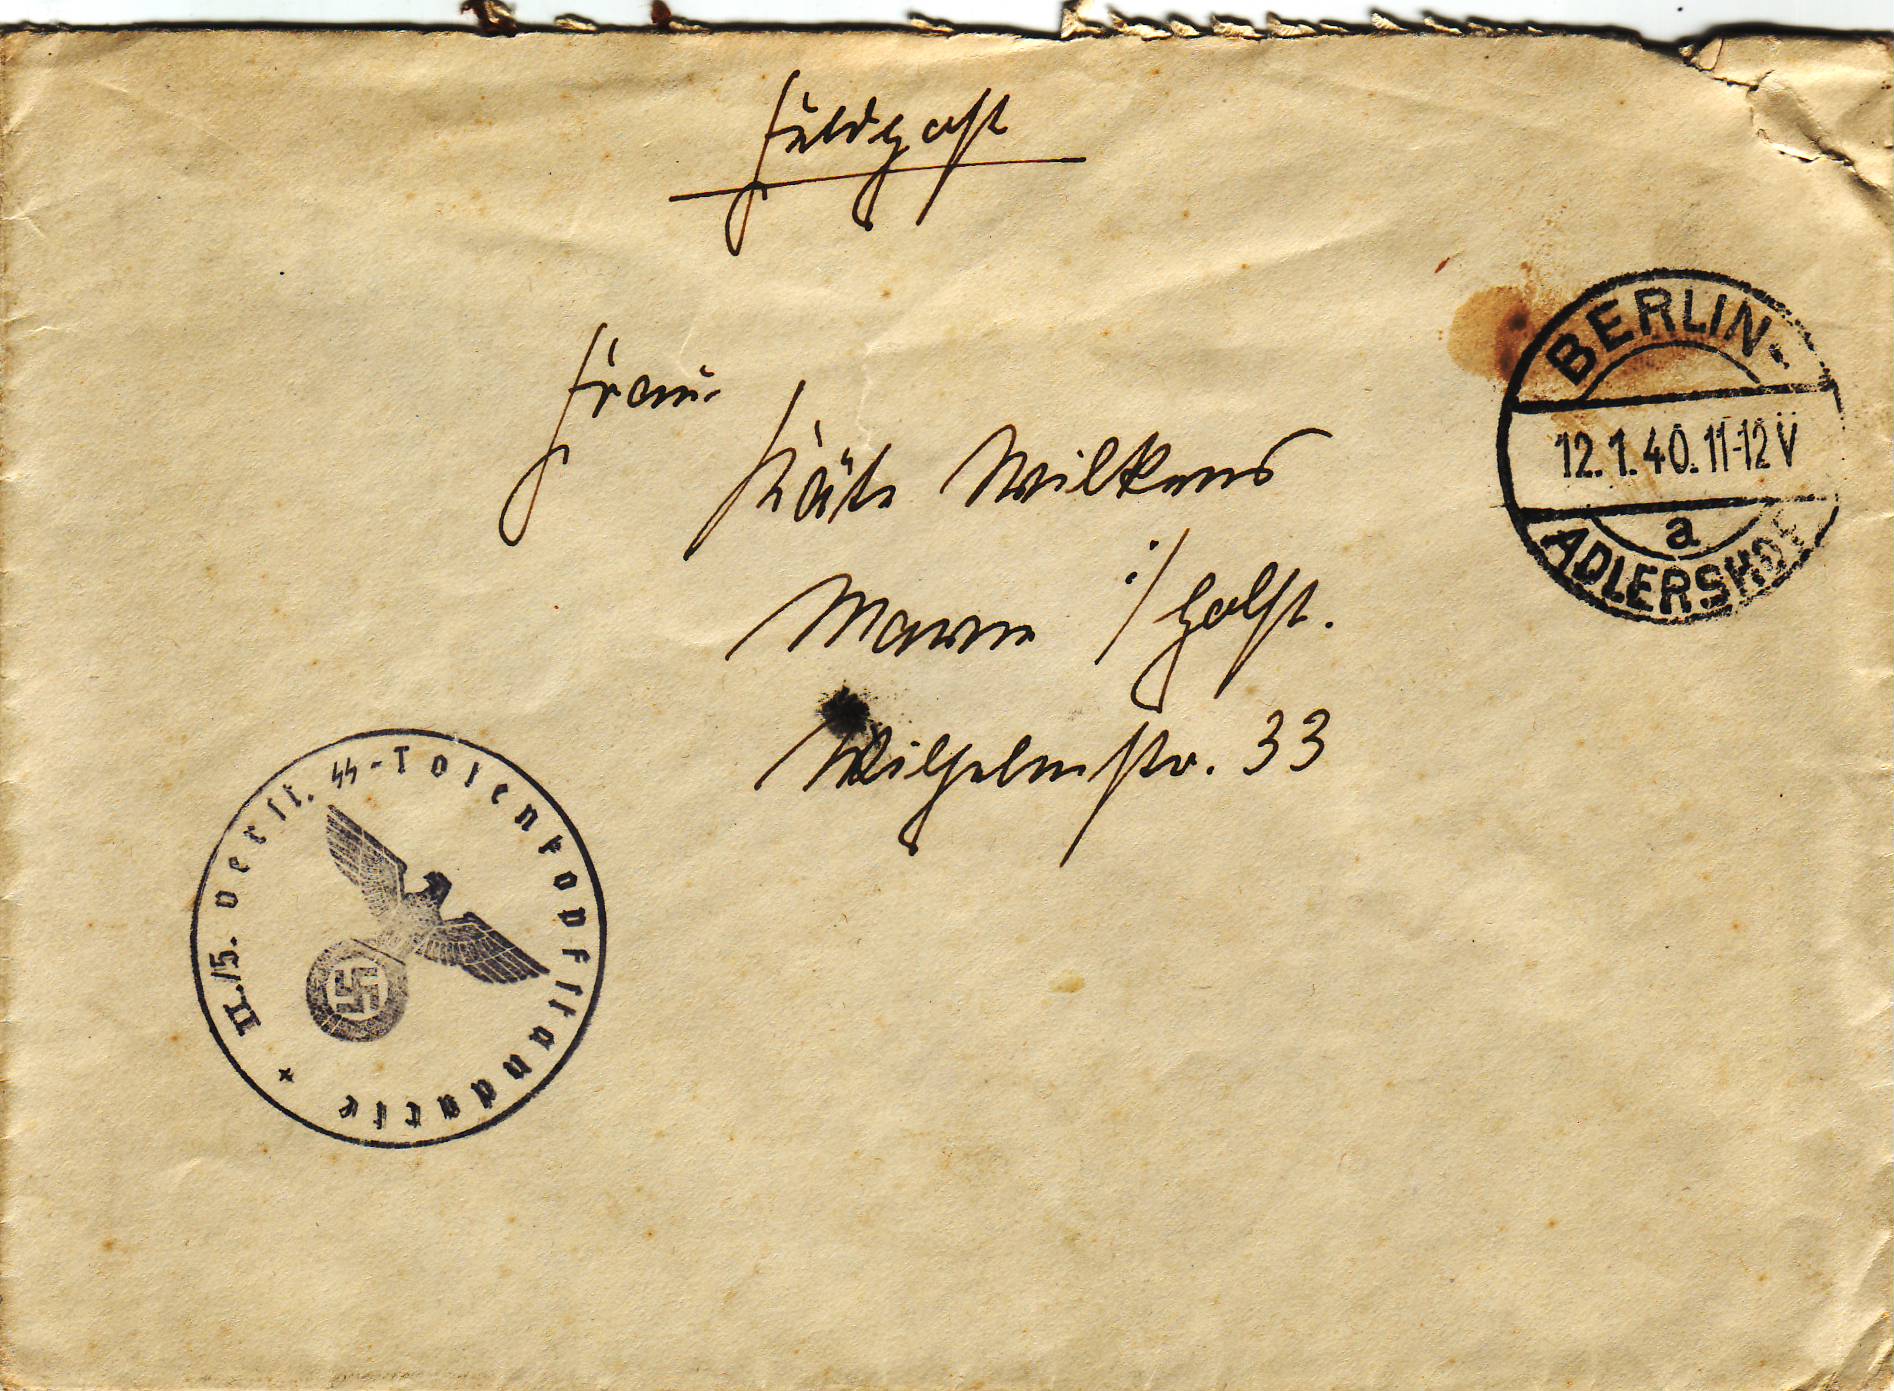 Feldpost
Frau
Käte Wilkens
Marne i/Holst.
Wilhelmstr. 33
BERLIN-
12.1.40.11-12V
a
ADLERSHOF
II./5. verst. SS-Totenkopfstandarte